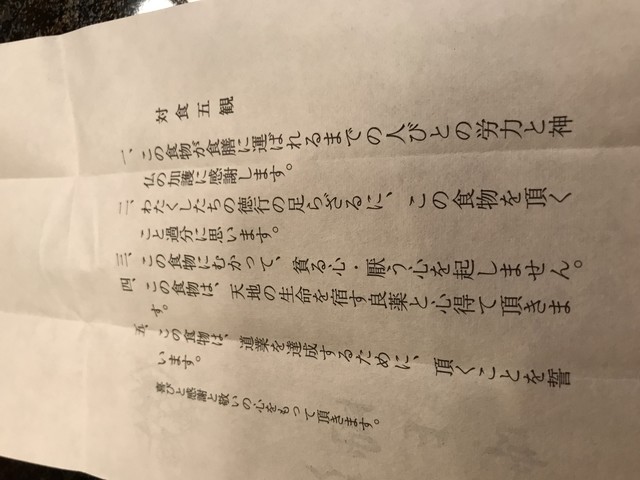 対食五観
一、この食物が食膳に運ばれるまでの人びとの労力と神
仏の加護に感謝します。
二、わたくしたちの徳行の足らざるに、この食物を頂く
こと過分に思います。
三、この食物にむかって、貧る心・厭う心を起しません。
四、この食物は、天地の生命を宿す良薬と心得て頂きま
す。
五、この食物は、道業を達成するために、頂くことを誓
います。
喜びと感謝と敬いの心をもって頂きます。